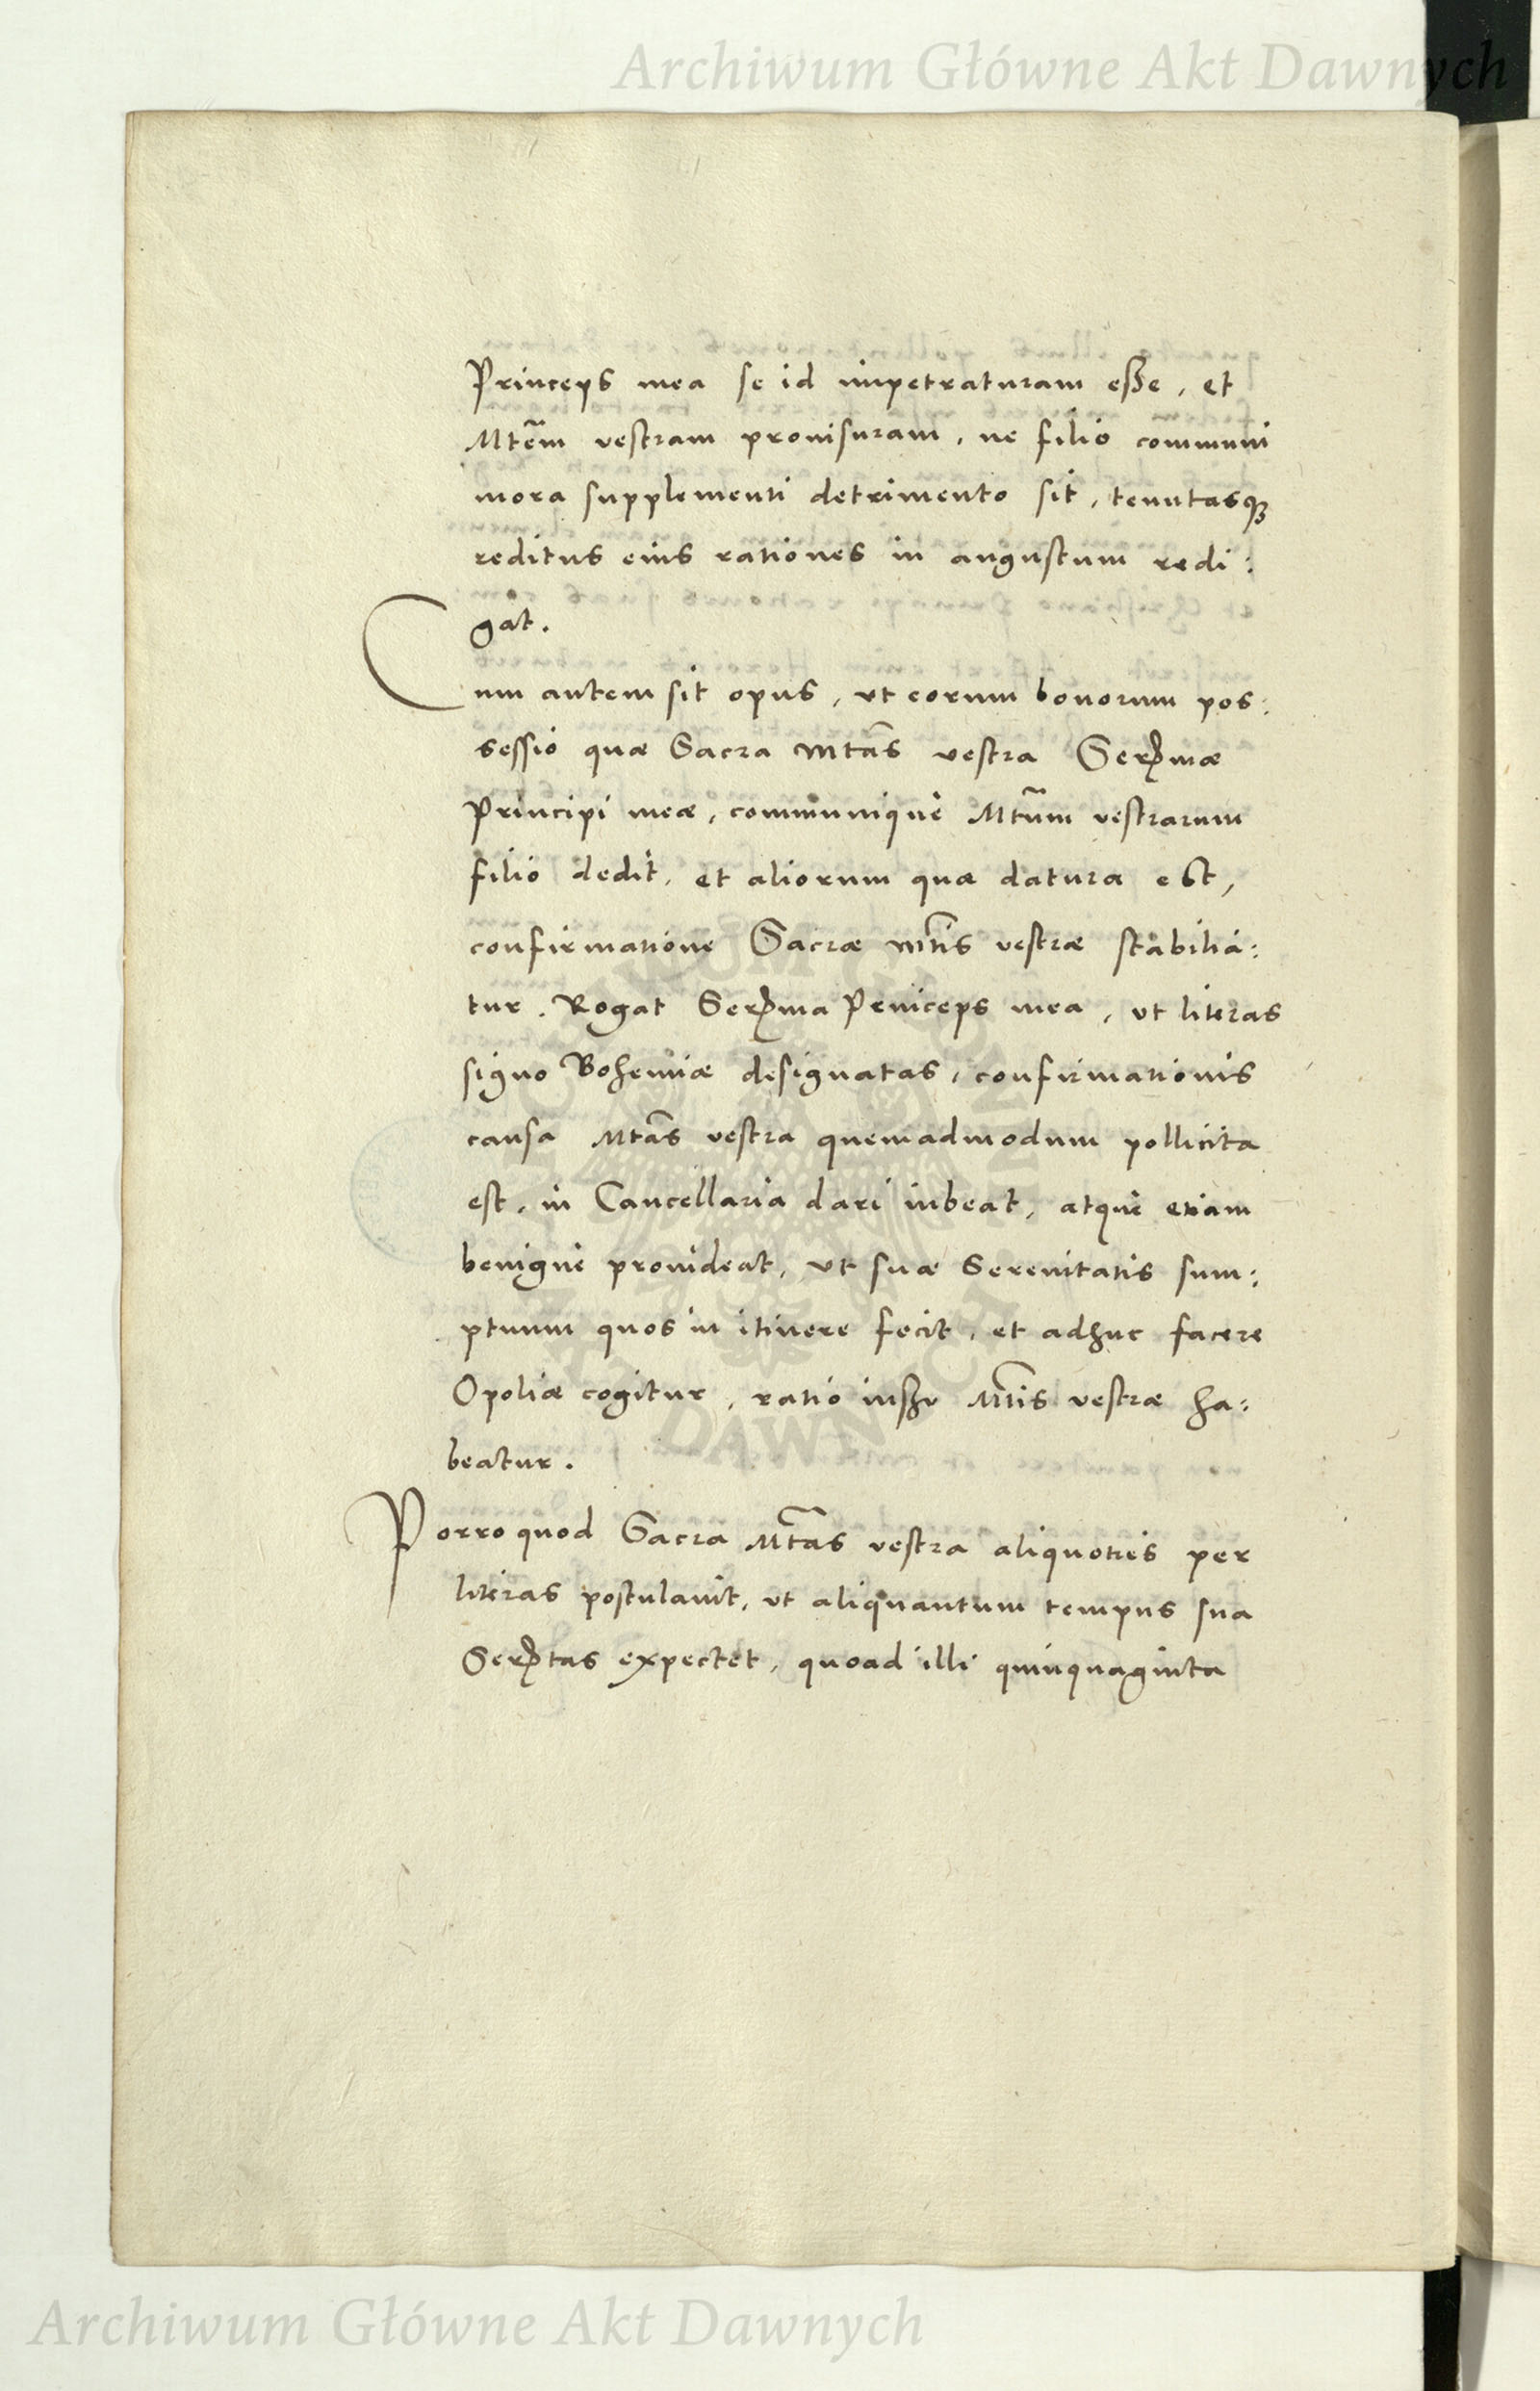 Archiwum Główne Akt Dawnych
Princeps mea se id impetraturam eße, et
Mtem vestram prouisuram, ne filio communi
mora supplementi detrimento sit, tenutasqȝ
reditus eius rationes in angustum redi:
gat.
Cum autem sit opus, vt eorum bonorum pos:
sessio quæ Sacra Mtas vestra Serma
Principi meæ, communique Mtum vestrarum
filio dedit, et aliorum quæ datura est,
confirmatione Sacræ Mtis vestræ stabilia:
tur. Rogat Serma Princeps mea, vt literas
signo Bohemiæ designatas, confirmationis
causa Mtas vestra quemadmodum pollicita
est, in Cancellaria dari iubeat, atque etiam
benigne prouideat, vt suæ Serenitatis sum:
ptuum quos in itinere fecit, et adhuc facere
Opoliæ cogitur, ratio iußu Mtis vestræ ha:
beatur.
Porro quod Sacra Mtas vestra aliquoties per
literas postulauit, vt aliquantum tempus sua
Sertas expectet, quoad illi quinquaginta
Archiwum Główne Akt Dawnych